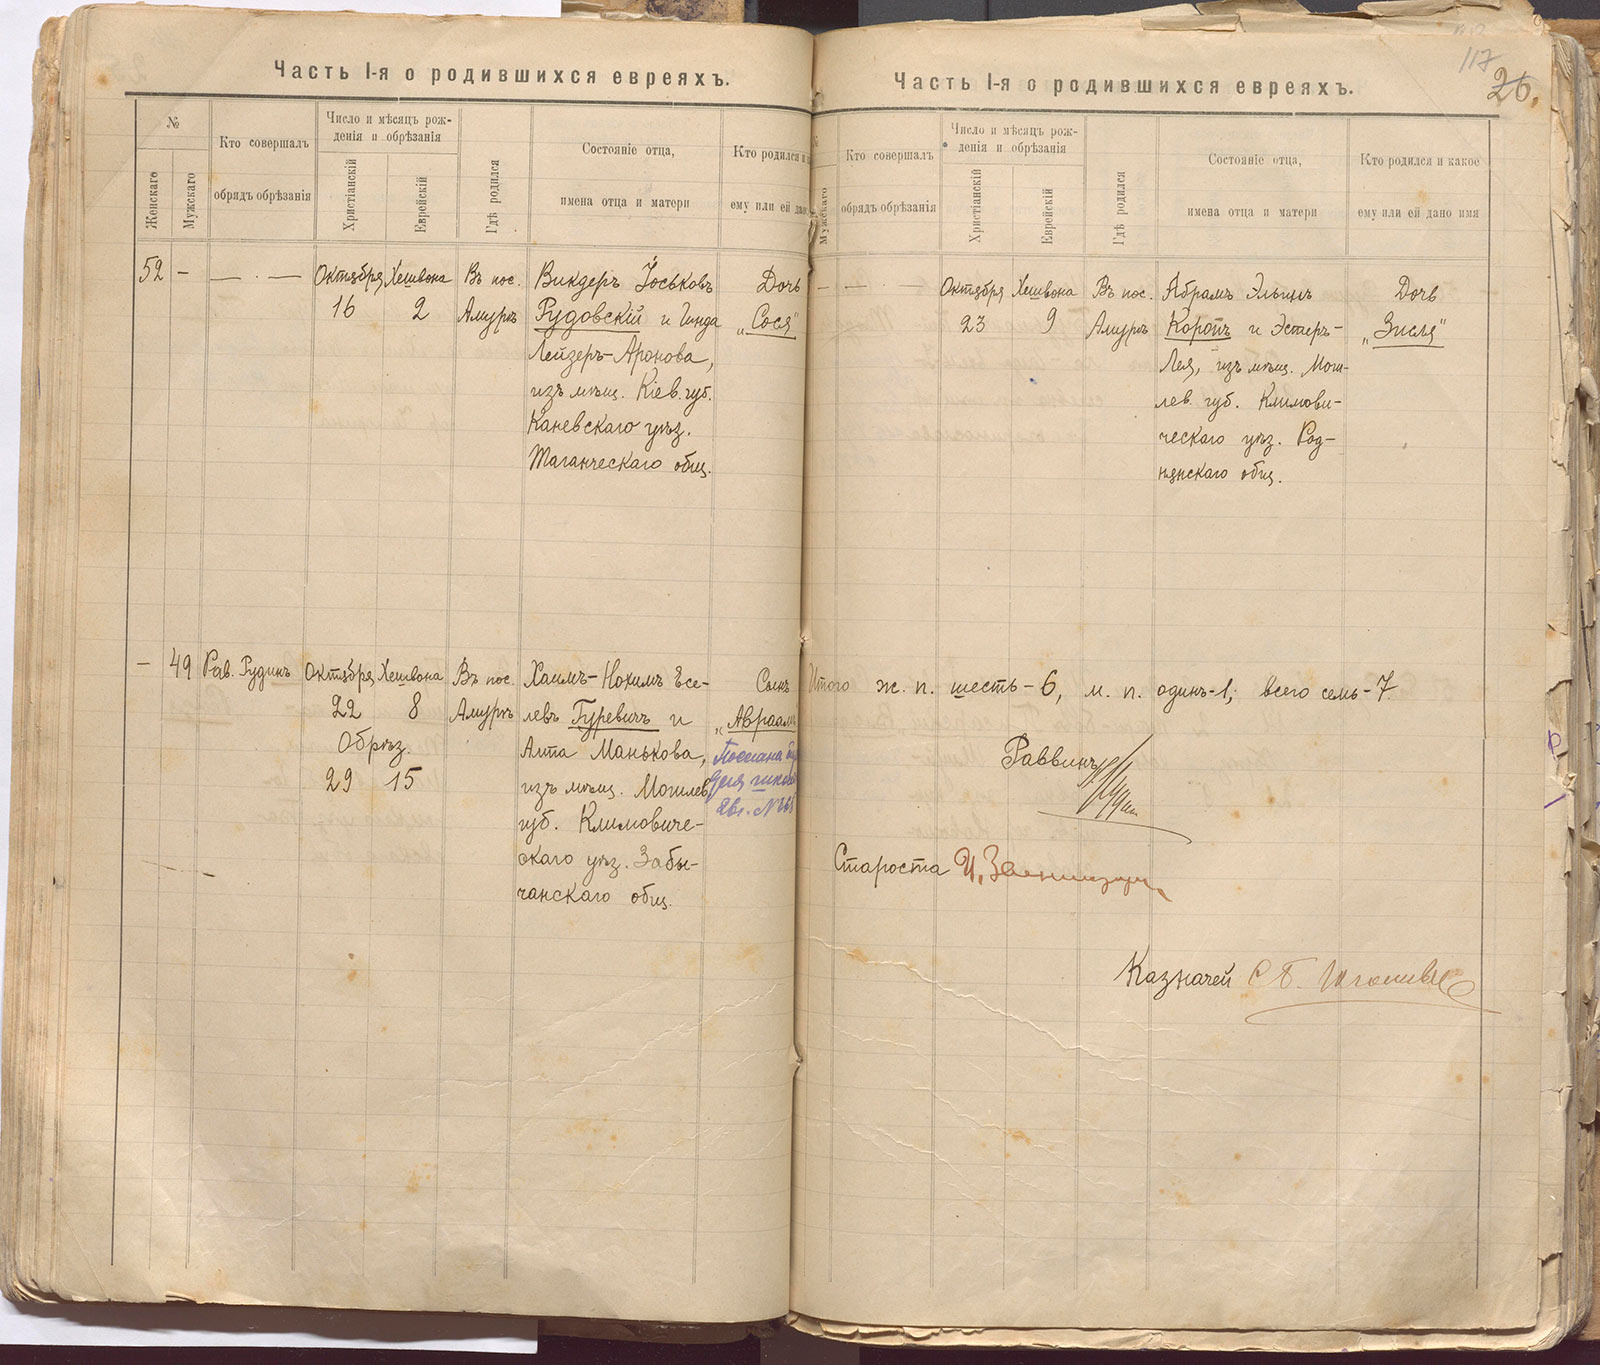 Часть I-я о родившихся евреяхъ.
№
Женскаго
Мужскаго
Кто совершалъ
обрядъ обрѣзанія
Число и мѣсяцъ рож-
денія и обрѣзанія
Христіанскій
Еврейскій
Гдѣ родился
Состояніе отца,
имена отца и матери
Кто родился и
ему или ей дано
52 – — · — Октября Хешвона Въ пос. Викдеръ Іоськовъ Дочь
16 2 Амуръ Рудовскій и Гинда „Сося"
Лейзеръ-Аронова,
изъ мѣщ. Кіев. губ.
Каневскаго уѣз.
Таганческаго общ.
– 49 Рав. Рудинъ Октября Хешвона Въ пос. Хаимъ-Нохимъ Есе- Сынъ
22 8 Амуръ левъ Гуревичъ и „Авраамъ
Обрѣз. Алта Манькова,
29 15 изъ мѣщ. Могилев.
губ. Климовиче-
скаго уѣз. Забы-
чанскаго общ.
117
26.
Часть I-я о родившихся евреяхъ.
Мужскаго
Кто совершалъ
обрядъ обрѣзанія
Число и мѣсяцъ рож-
денія и обрѣзанія
Христіанскій
Еврейскій
Гдѣ родился
Состояніе отца,
имена отца и матери
Кто родился и какое
ему или ей дано имя
– — · — Октября Хешвона Въ пос. Абрамъ Эльинъ Дочь
23 9 Амуръ Коропъ и Эстеръ- „Зисля"
Лея, изъ мѣщ. Моги-
лев. губ. Климови-
ческаго уѣз. Род-
нянскаго общ.
Итого ж. п. шесть - 6, м. п. одинъ - 1, всего семь - 7.
Раввинъ
Староста И.
Казначей